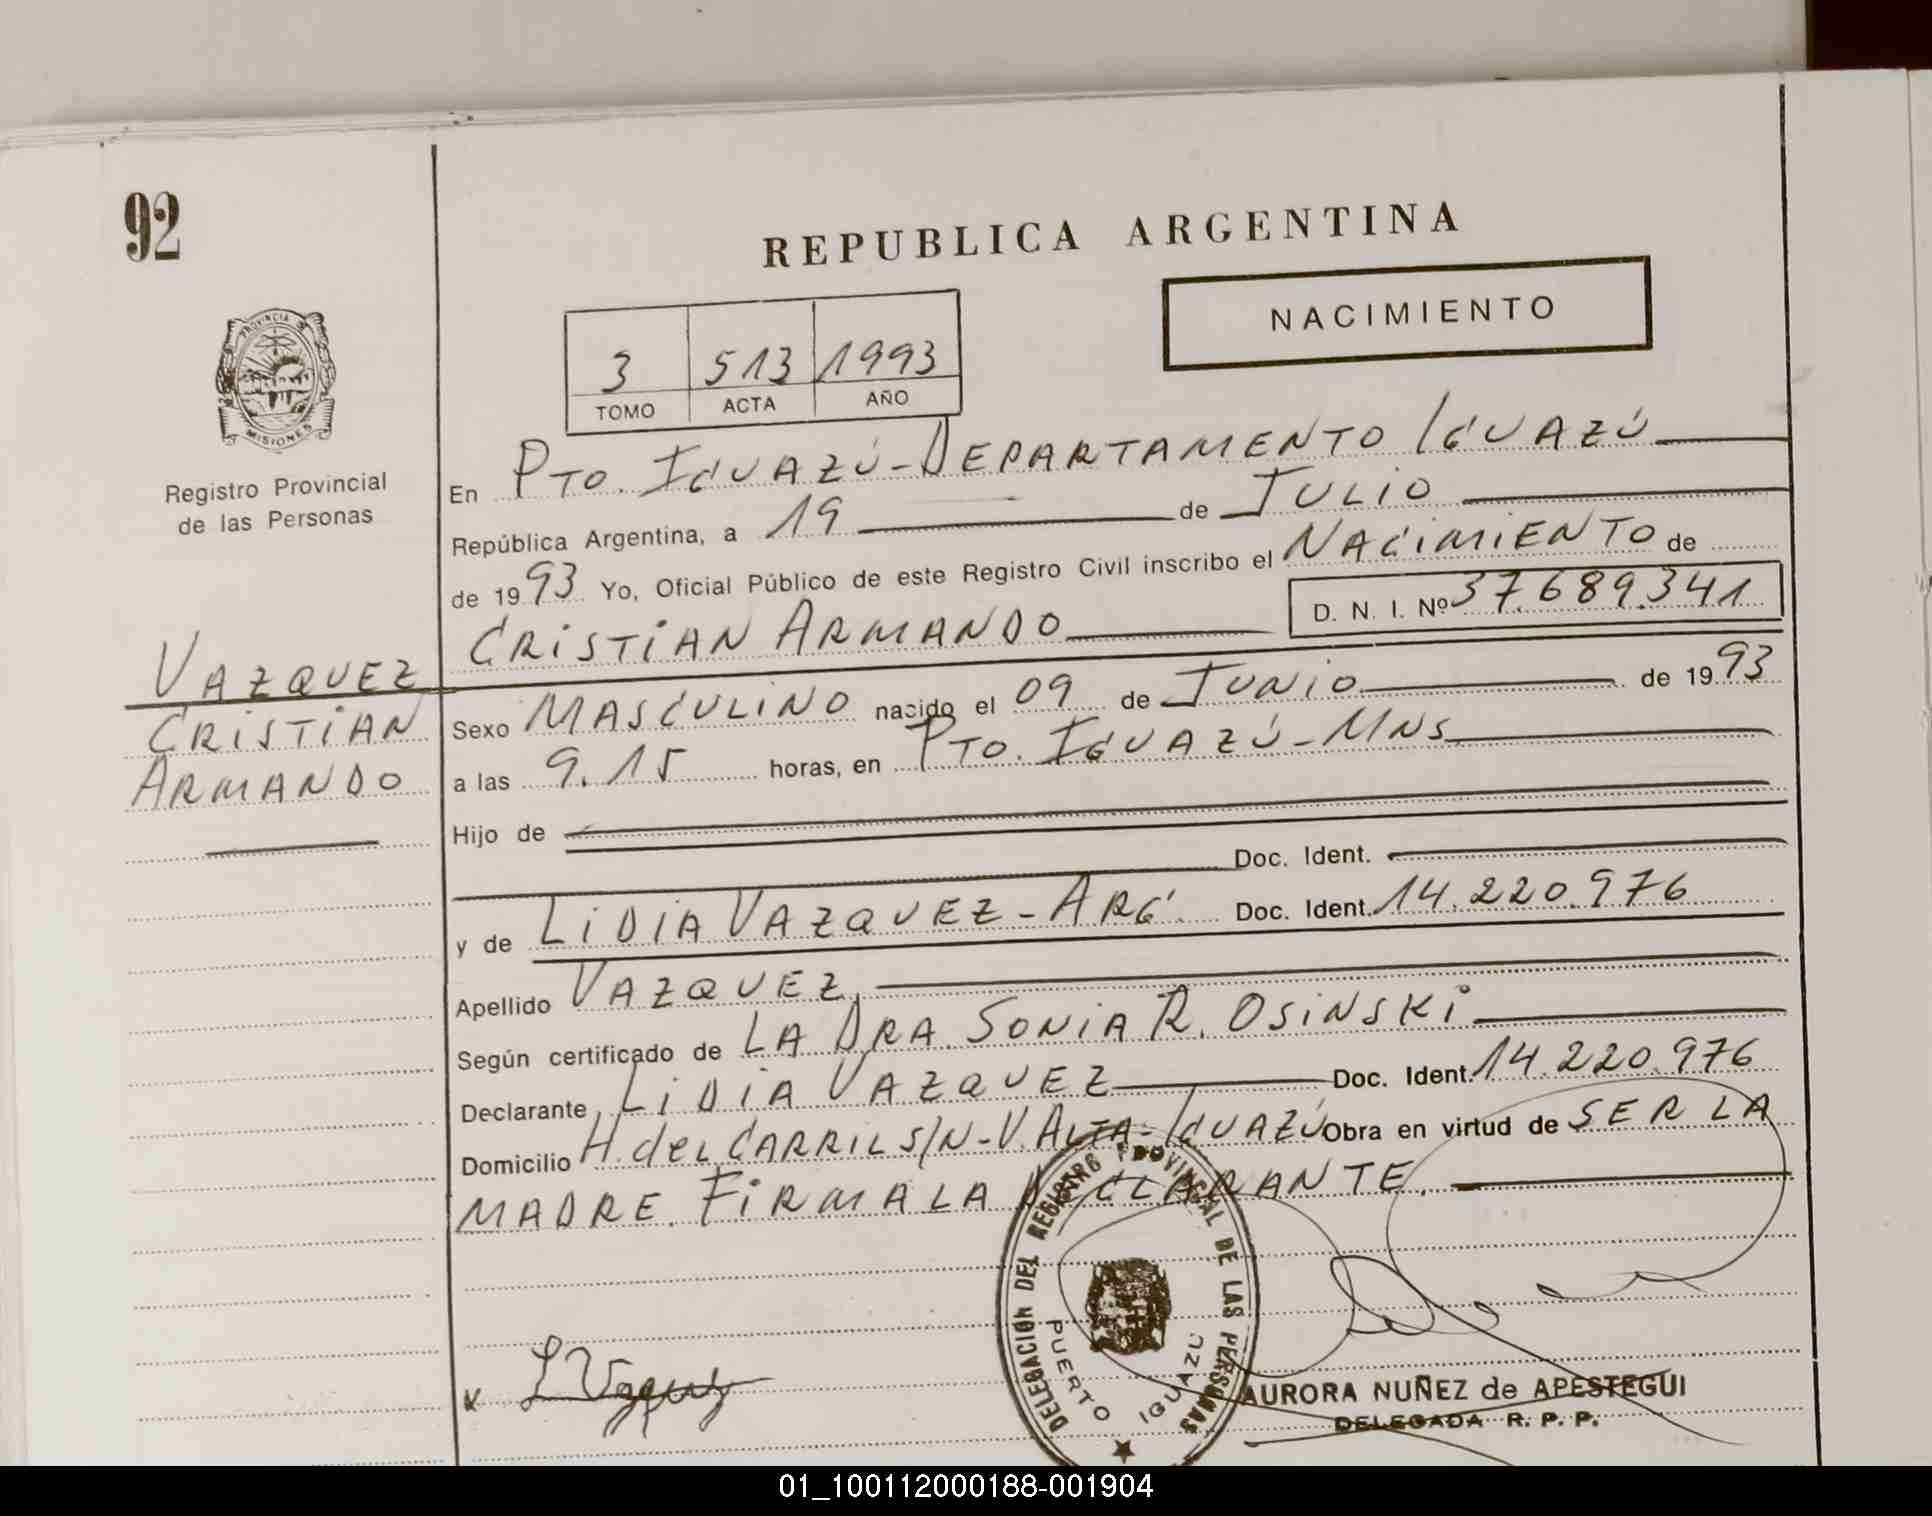 92
REPUBLICA ARGENTINA
NACIMIENTO
3 513 1993
TOMO ACTA AÑO
PROVINCIA DE
MISIONES
Registro Provincial
de las Personas
En PTO. IGUAZÚ-DEPARTAMENTO IGUAZÚ
República Argentina, a 19 de JULIO
de 1993 Yo, Oficial Público de este Registro Civil inscribo el NACIMIENTO de
D. N. I. Nº 37.689.341
CRISTIAN ARMANDO
VAZQUEZ
CRISTIAN
ARMANDO
Sexo MASCULINO nacido el 09 de JUNIO de 1993
a las 9.15 horas, en PTO. IGUAZÚ-MNS.
Hijo de
Doc. Ident.
y de LIDIA VAZQUEZ-ARG. Doc. Ident. 14.220.976
Apellido VAZQUEZ.
Según certificado de LA DRA SONIA R. OSINSKI
Declarante LIDIA VAZQUEZ Doc. Ident. 14.220.976
Domicilio H. del CARRIL S/N-V.ALTA-IGUAZÚ Obra en virtud de SER LA
MADRE. FIRMA LA DECLARANTE.
DELEGACIÓN DEL REGISTRO PROVINCIAL DE LAS PERSONAS
PUERTO IGUAZÚ
L Vazquez
AURORA NUÑEZ de APESTEGUI
DELEGADA R. P. P.
01_100112000188-001904